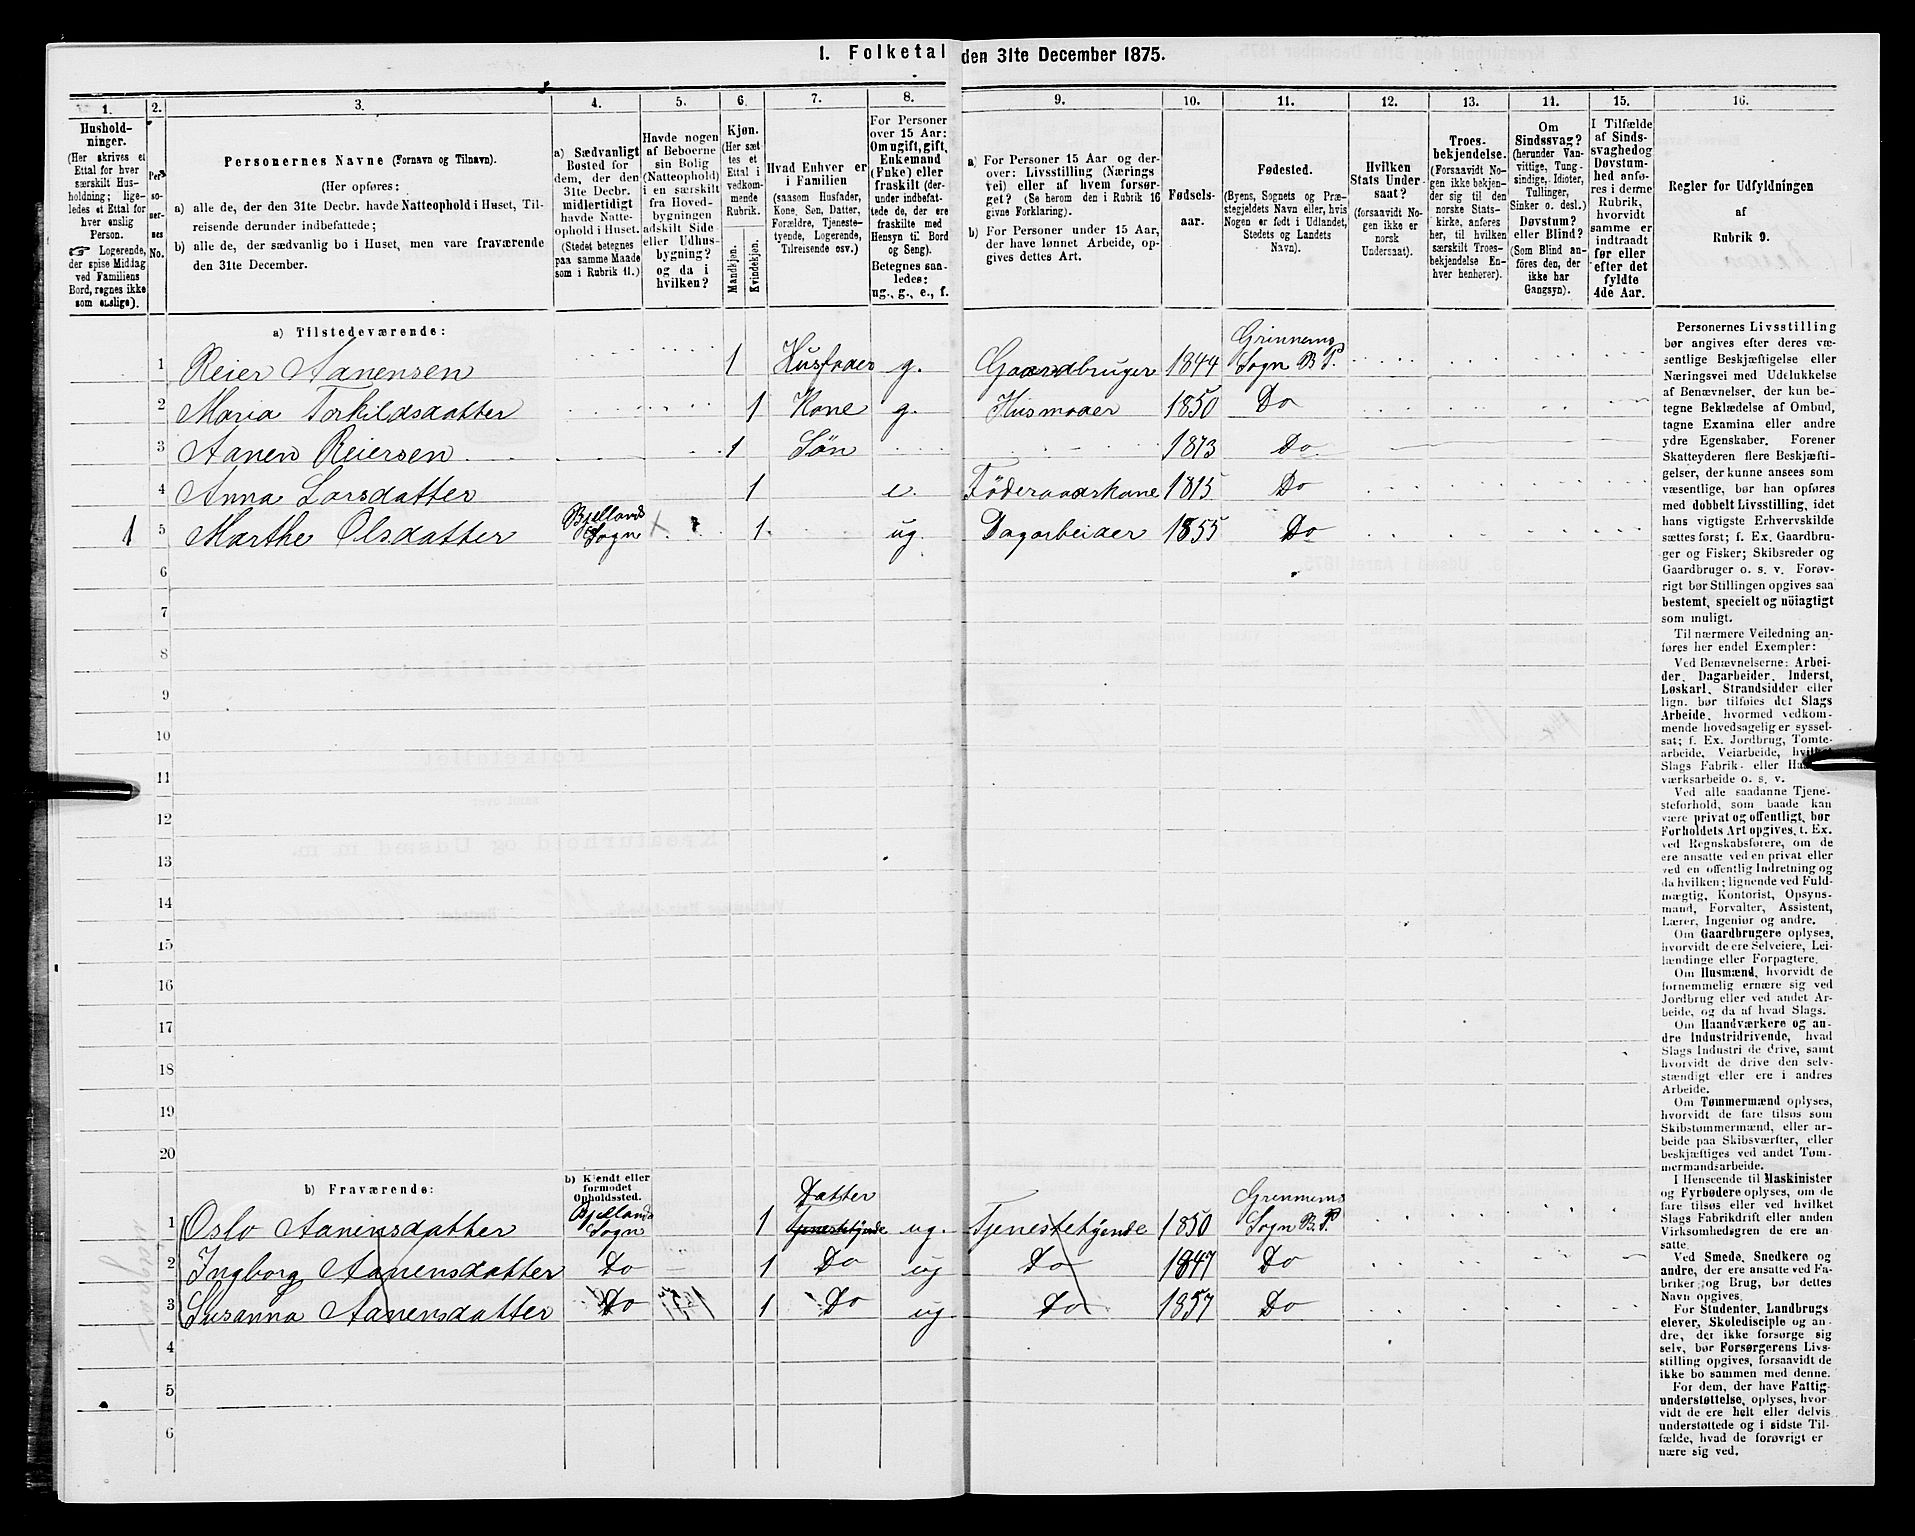 1. Folketal den 31te December 1875.
1. 2. 3. 4. 5. 6. 7. 8. 9. 10. 11. 12. 13. 14. 15. 16.
Hushold-
ninger.
(Her skrives et
Ettal for hver
særskilt Hus-
holdning; lige-
ledes et Ettal for
hver enslig
Person.
Logerende,
der spise Middag
ved Familiens
Bord, regnes ikke
som enslige).
Per
so-
ner-
nes
No.
Personernes Navne (Fornavn og Tilnavn).
(Her opføres:
a) alle de, der den 31te Decbr. havde Natteophold i Huset, Til-
reisende derunder indbefattede;
b) alle de, der sædvanlig bo i Huset, men vare fraværende
den 31te December.
a) Sædvanligt
Bosted for
dem, der den
31te Decbr.
midlertidigt
havde Natte-
ophold i Huset.
(Stedet betegnes
paa samme Maade
som i Rubrik 11.)
Havde nogen
af Beboerne
sin Bolig
(Natteophold)
i en særskilt
fra Hoved-
bygningen
adskilt Side
eller Udhus-
bygning?
og da i
hvilken?
Kjøn.
(Her sæt-
tes et
Ettal i
vedkom-
mende
Rubrik.
Mandkjøn.
Kvindekjøn.
Hvad Enhver er
i Familien
(saasom Husfader,
Kone, Søn, Datter,
Forældre, Tjeneste-
tyende, Logerende,
Tilreisende osv.)
For Personer
over 15 Aar:
Om ugift, gift,
Enkemand
(Enke) eller
fraskilt (der-
under indbefat-
tede de, der ere
fraskilte med
Hensyn til Bord
og Seng).
Betegnes saa-
ledes:
ug., g., e., f.
a) For Personer 15 Aar og der-
over: Livsstilling (Nærings
vei) eller af hvem forsør-
get? (Se herom den i Rubrik 16
givne Forklaring).
b) For Personer under 15 Aar,
der have lønnet Arbeide, op-
gives dettes Art.
Fødsels-
aar.
Fødested.
(Byens, Sognets og Præ-
stegjeldets Navn eller, hvis
Nogen er født i Udlandet,
Stedets og Landets
Navn).
Hvilken
Stats Under-
saat?
(forsaavidt No-
gen ikke er
norsk
Undersaat).
Troes-
bekjendelse.
(Forsaavidt No-
gen ikke bekjen-
der sig til den
norske Stats-
kirke, anføres
her, til hvilken
særskilt Troes-
bekjendelse En-
hver henhører).
Om
Sindssvag?
(herunder Van-
vittige, Tung-
sindige, Idioter,
Tullinger,
Sinker o. desl.)
Døvstum?
eller Blind?
(Som Blind an-
føres den, der
ikke har
Gangsyn).
I Tilfælde
af Sinds-
svaghed og
Døvstum-
hed anfø-
res i denne
Rubrik,
hvorvidt
samme er
indtraadt
før eller
efter det
fyldte
4de Aar.
Regler for Udfyldningen
af
Rubrik 9.
a) Tilstedeværende:
1 Reier Aanensen 1 Husfader g. Gaardbruger 1844 Grinnems Sogn B. P.
2 Maria Torkildsdatter 1 Kone g. Husmoder 1850 Do
3 Aanen Reiersen 1 Søn 1873 Do
4 Anna Larsdatter 1 e. Föderaadskone 1815 Do
1 5 Marthe Olsdatter Bjellands Sogn 1 ug. Dagarbeider 1855 Do
6
7
8
9
10
11
12
13
14
15
16
17
18
19
20
b) Fraværende:
b) Kjendt eller
formodet
Opholdssted.
1 Oslo Aanensdatter Bjellands Sogn 1 Datter Tjenestetyende ug. Tjenestetyende 1850 Grinnems Sogn B. P
2 Ingborg Aanensdatter Do 1 Do ug Do 1847 Do
3 Susanna Aanensdatter Do 1 Do ug Do 1857 Do
4
5
6
Personernes Livsstilling
bør angives efter deres væ-
sentlige Beskjæftigelse eller
Næringsvei med Udelukkelse
af Benævnelser, der kun be-
tegne Beklædelse af Ombud,
tagne Examina eller andre
ydre Egenskaber. Forener
Skatteyderen flere Beskjæfti-
gelser, der kunne ansees som
væsentlige, bør han opføres
med dobbelt Livsstilling, idet
hans vigtigste Erhvervskilde
sættes først; f. Ex. Gaardbru-
ger og Fisker; Skibsreder og
Gaardbruger o. s. v. Forøv-
rigt bør Stillingen opgives saa
bestemt, specielt og nöiagtigt
som muligt.
Til nærmere Veiledning an-
føres her endel Exempler:
Ved Benævnelserne: Arbei-
der, Dagarbeider, Inderst,
Løskarl, Strandsidder eller
lign. bør tilføies det Slags
Arbeide, hvormed vedkom-
mende hovedsagelig er syssel-
sat; f. Ex. Jordbrug, Tomte-
arbeide, Veiarbeide, hvilket
Slags Fabrik- eller
værksarbeide o. s. v.
Ved alle saadanne Tjene-
steforhold, som baade kan
være privat og offentligt, bør
Forholdets Art opgives, t. Ex.
ved Regnskabsførere, om de
ere ansatte ved en privat eller
ved en offentlig Indretning og
da hvilken; lignende ved Fuld-
mægtig, Kontorist, Opsyns-
mand, Forvalter, Assistent,
Lærer, Ingeniør og andre.
Om Gaardbrugere oplyses,
hvorvidt de ere Selveiere, Lei-
lændinge eller Forpagtere.
Om Husmænd, hvorvidt de
fornemmelig ernære sig ved
Jordbrug eller ved andet Ar-
beide, og da af hvad Slags.
Om Haandværkere og an-
dre Industridrivende, hvad
Slags Industri de drive, samt
hvorvidt de drive den selv-
stændigt eller ere i andres
Arbeide.
Om Tømmermænd oplyses,
hvorvidt de fare tilsøs som
Skibstømmermænd, eller ar-
beide paa Skibsværfter, eller
beskjæftiges ved andet Tøm-
mermandsarbeide.
I Henseende til Maskinister
og Fyrbødere oplyses, om de
fare tilsøs eller ved hvilket
Slags Fabrikdrift eller anden
Virksomhedsgren de ere an-
satte.
Ved Smede, Snedkere og
andre, der ere ansatte ved Fa-
briker og Brug, bør dettes
Navn opgives.
For Studenter, Landbrugs
elever, Skoledisciple og an-
dre, der ikke forsørge sig
selv, bør Forsørgerens Livs-
stilling opgives, forsaavidt de
ikke bo sammen med denne.
For dem, der have Fattig-
understøttelse, oplyses, hvor-
vidt de ere helt eller delvis
understøttede og i sidste Til-
fælde, hvad de forøvrigt er
nære sig ved.